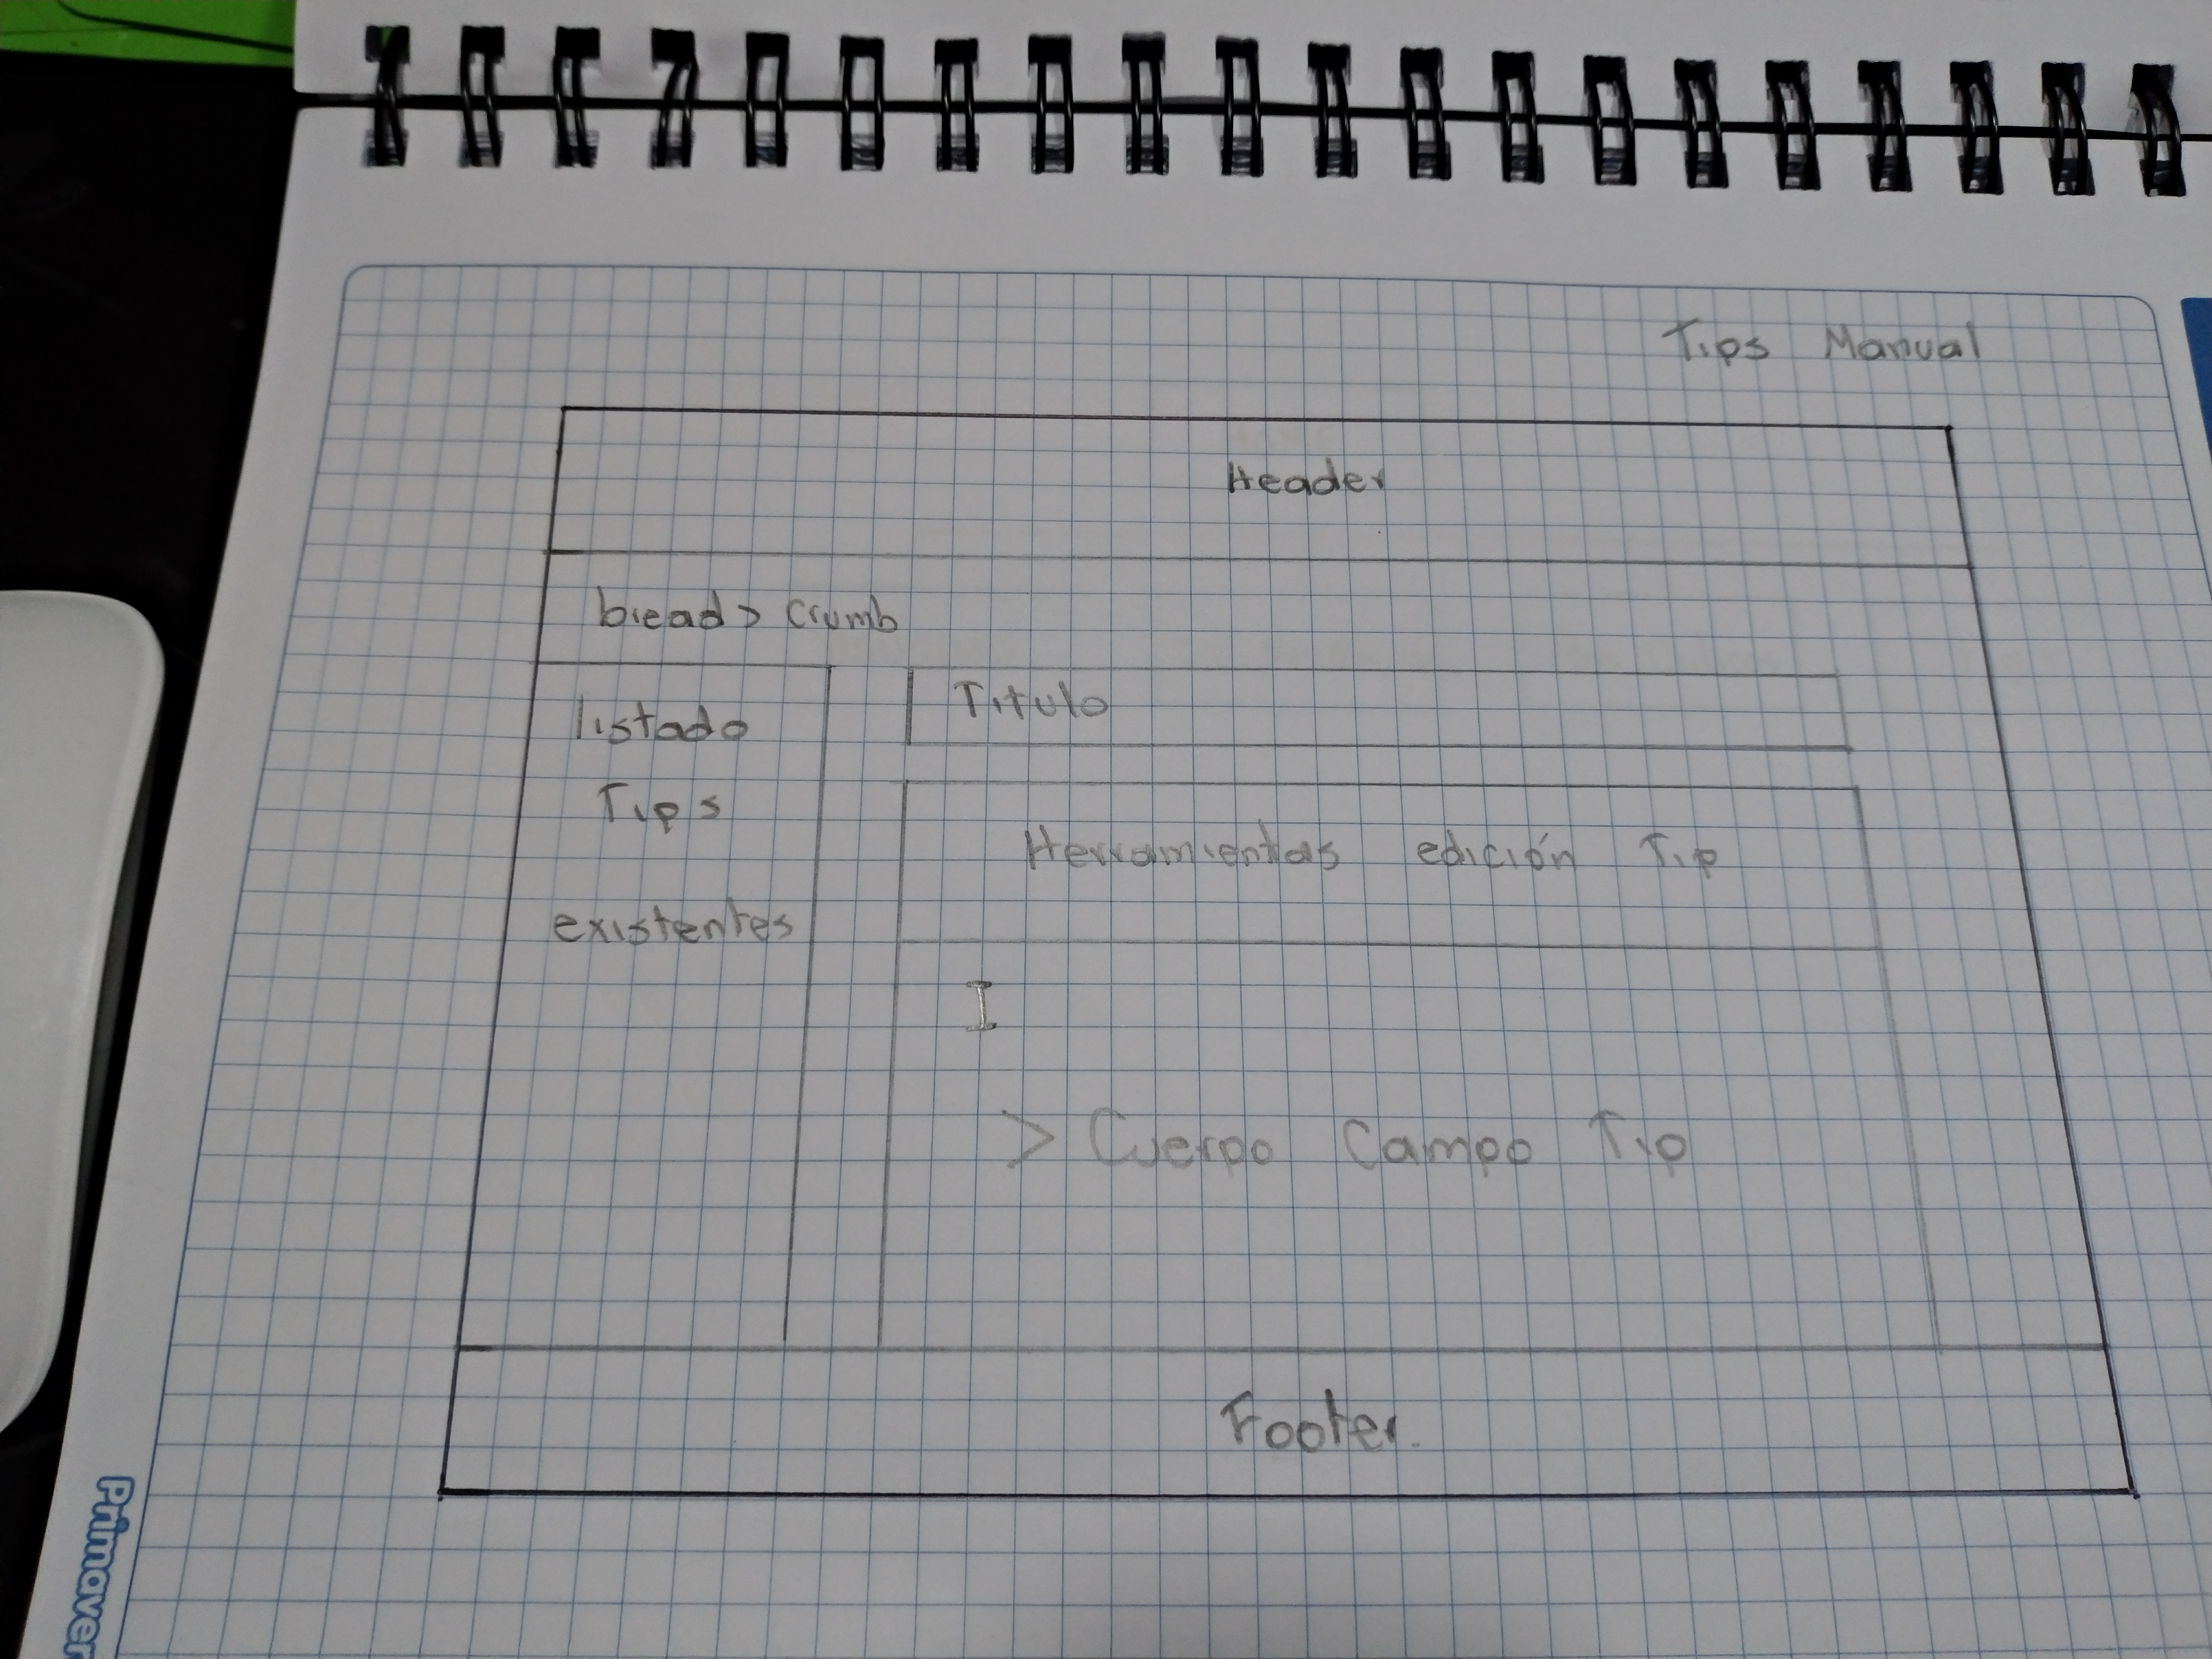 Tips Manual
Header
bread > Crumb
listado
Tips
existentes
Titulo
Herramientas edición Tip
I
> Cuerpo Campo Tip
Footer.
Primaver